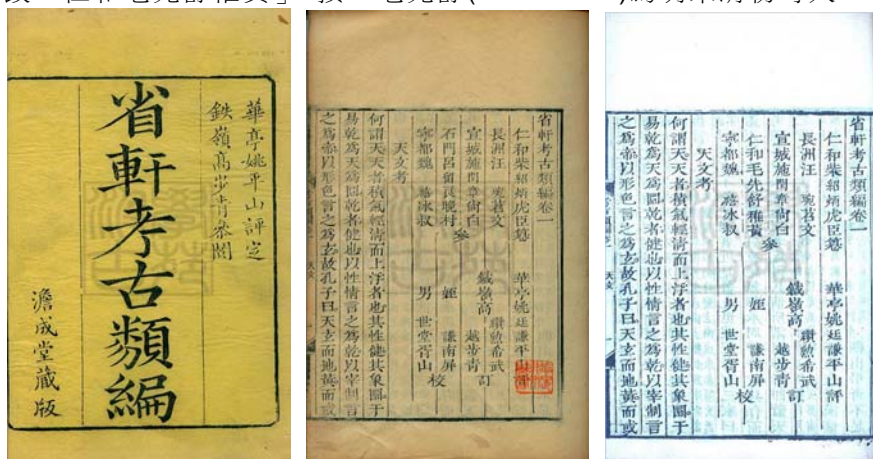 華亭姚平山評定
鉄嶺高步青叅閱
省軒考古類編
澹成堂藏版
省軒考古類編卷一
仁和柴紹炳虎臣纂 華亭姚廷謙平山評
長洲汪 琬苕文 纘勲希武
宣城施閏章尚白 參 鐵嶺高 訂
石門呂留良晚村 越步青
寧都魏 禧冰叔 姪 謙南屏 校
天文考 男 世堂胥山
何謂天天者積氣輕清而上浮者也其性健其象圜于
易乾為天為圜乾者健也以性情言之為乾以宰制言
之為帝以形色言之為玄故孔子曰天玄而地黃而或
省軒考古類編卷一
仁和柴紹炳虎臣纂 華亭姚廷謙平山評
長洲汪 琬苕文 纘勲希武
宣城施閏章尚白 參 鐵嶺高 訂
仁和毛先舒稚黃 越步青
寧都魏 禧冰叔 姪 謙南屏 校
天文考 男 世堂胥山
何謂天天者積氣輕清而上浮者也其性健其象圜于
易乾為天為圜乾者健也以性情言之為乾以宰制言
之為帝以形色言之為玄故孔子曰天玄而地黃而或